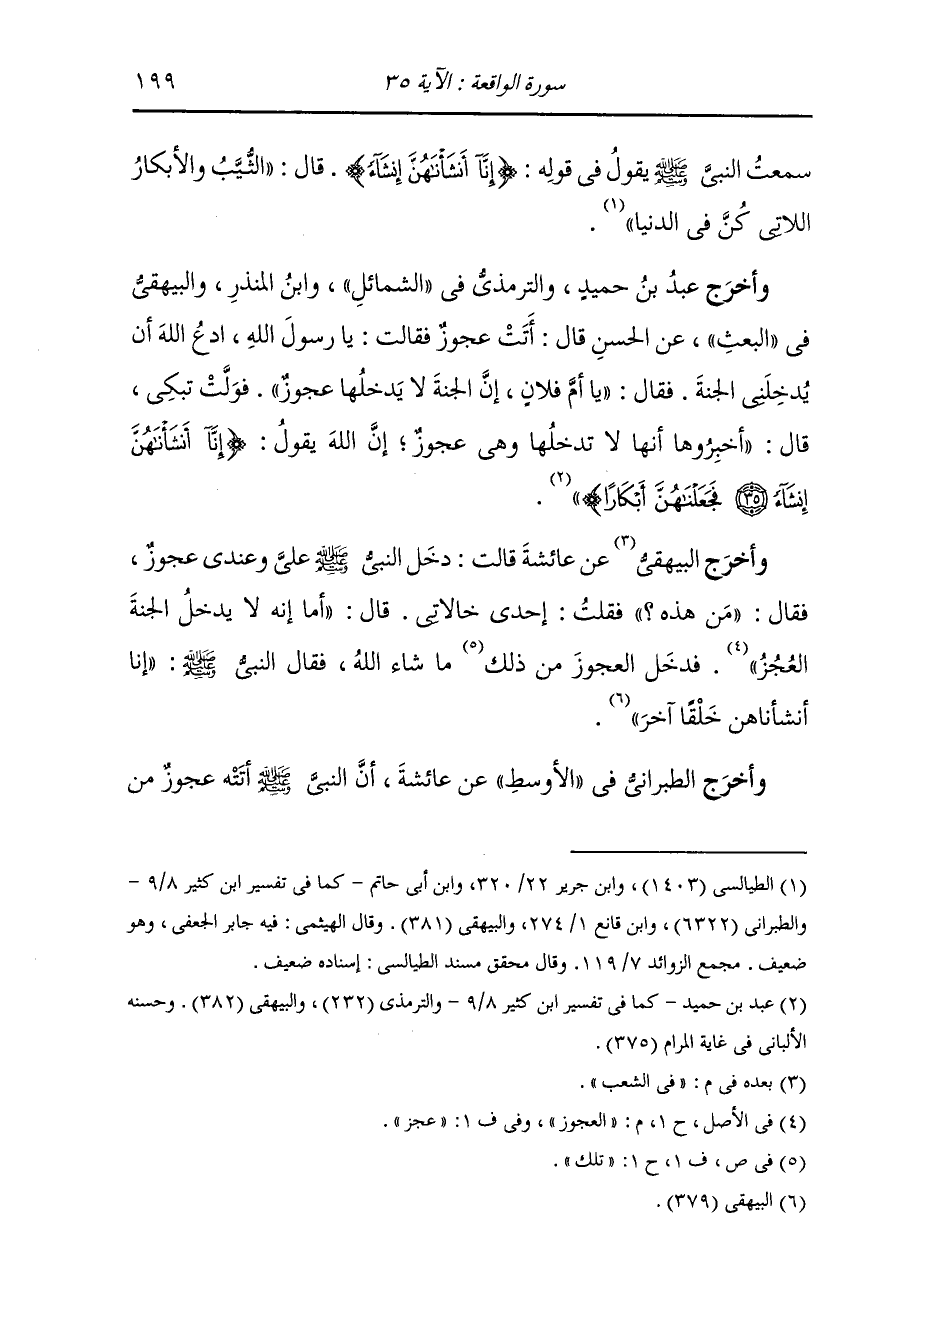 سورة الواقعة : الآية ٣٥ ١٩٩
سمعتُ النبىَّ ﷺ يقولُ فى قولِه : ﴿إِنَّآ أَنشَأْنَٰهُنَّ إِنشَآءً﴾ . قال : «الثَّيِّبُ والأبكارُ
اللاتِى كُنَّ فى الدنيا»(١) .
وأخرَج عبدُ بنُ حميدٍ ، والترمذىُّ فى «الشمائلِ» ، وابنُ المنذرِ ، والبيهقىُّ
فى «البعثِ» ، عن الحسنِ قال : أَتَتْ عجوزٌ فقالت : يا رسولَ اللهِ ، ادعُ اللهَ أن
يُدخِلَنِى الجنةَ . فقال : «يا أمَّ فلانٍ ، إنَّ الجنةَ لا يَدخلُها عجوزٌ» . فوَلَّتْ تبكِى ،
قال : «أخبِرُوها أنها لا تدخلُها وهى عجوزٌ ؛ إنَّ اللهَ يقولُ : ﴿إِنَّآ أَنشَأْنَٰهُنَّ
إِنشَآءً ۝٣٥ فَجَعَلْنَٰهُنَّ أَبْكَارًا﴾»(٢) .
وأخرَج البيهقىُّ(٣) عن عائشةَ قالت : دخَل النبىُّ ﷺ علىَّ وعندى عجوزٌ ،
فقال : «مَن هذه ؟» فقلتُ : إحدى خالاتِى . قال : «أما إنه لا يدخلُ الجنةَ
العُجُزُ»(٤) . فدخَل العجوزَ من ذلك(٥) ما شاء اللهُ ، فقال النبىُّ ﷺ : «إنا
أنشأناهن خَلْقًا آخرَ»(٦) .
وأخرَج الطبرانىُّ فى «الأوسطِ» عن عائشةَ ، أنَّ النبىَّ ﷺ أتَتْه عجوزٌ من
(١) الطيالسى (١٤٠٣) ، وابن جرير ٢٢/ ٣٢٠، وابن أبى حاتم - كما فى تفسير ابن كثير ٩/٨ -
والطبرانى (٦٣٢٢) ، وابن قانع ١/ ٢٧٤، والبيهقى (٣٨١) . وقال الهيثمى : فيه جابر الجعفى ، وهو
ضعيف . مجمع الزوائد ٧/ ١١٩. وقال محقق مسند الطيالسى : إسناده ضعيف .
(٢) عبد بن حميد - كما فى تفسير ابن كثير ٩/٨ - والترمذى (٢٣٢) ، والبيهقى (٣٨٢) . وحسنه
الألبانى فى غاية المرام (٣٧٥) .
(٣) بعده فى م : « فى الشعب » .
(٤) فى الأصل ، ح ١، م : « العجوز » ، وفى ف ١: « عجز » .
(٥) فى ص ، ف ١، ح ١: « تلك » .
(٦) البيهقى (٣٧٩) .